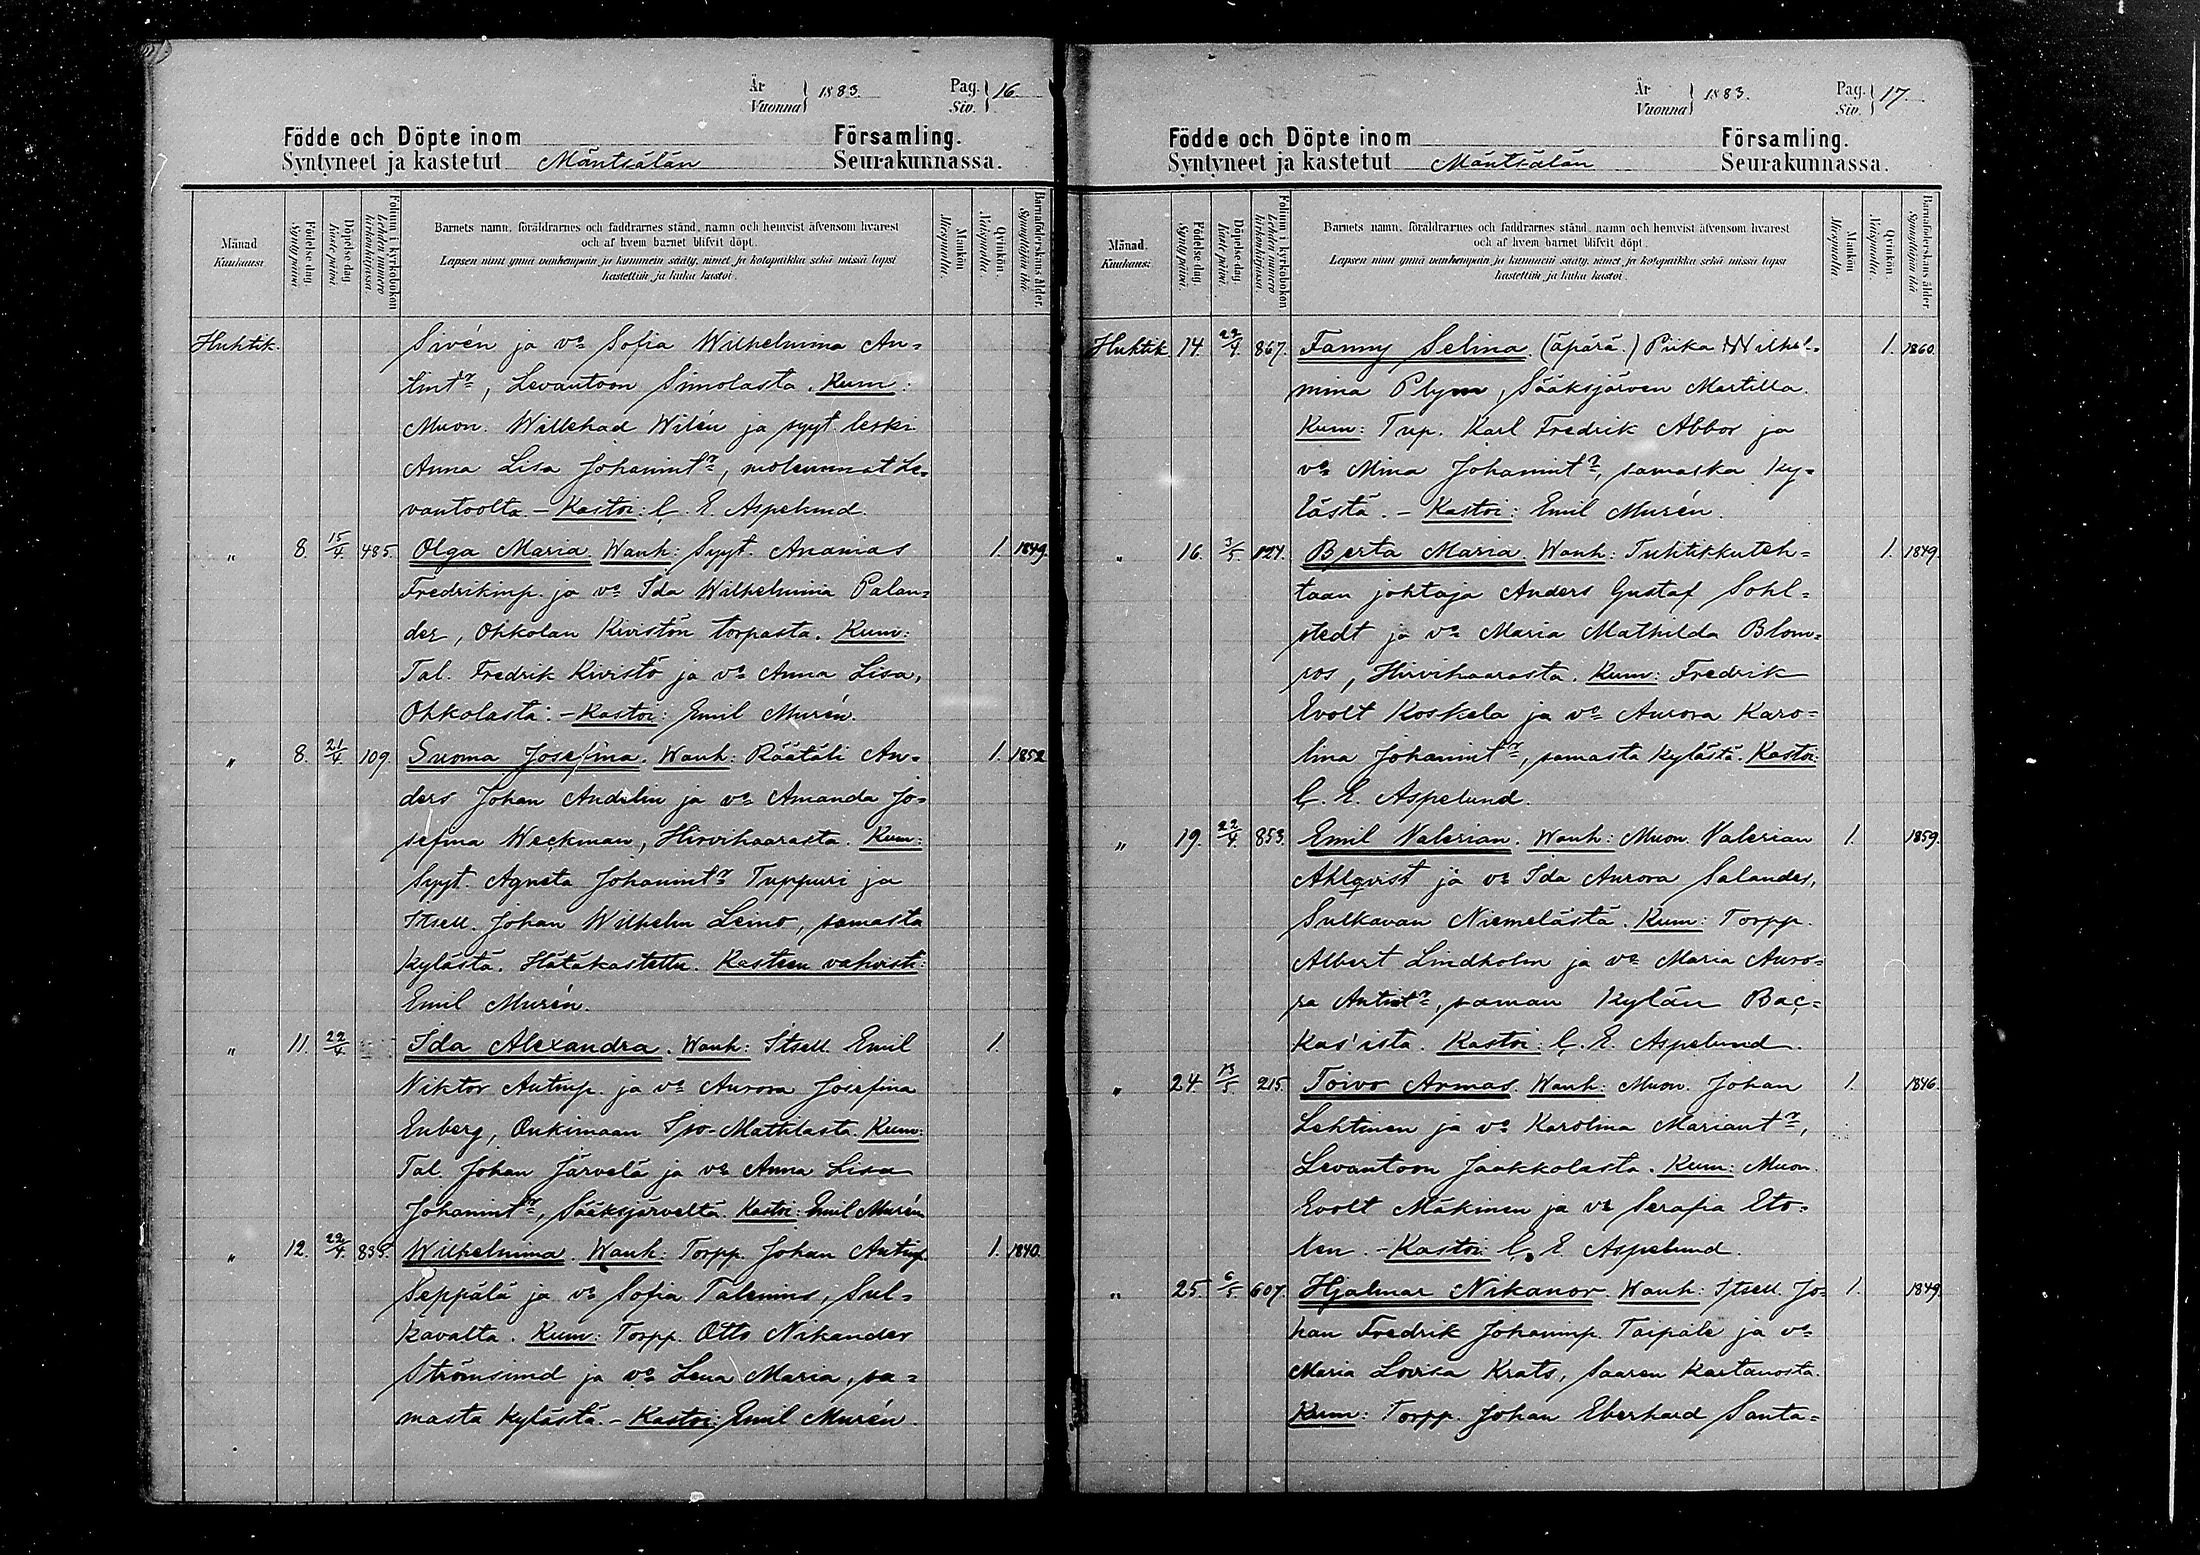 År
Vuonna } 1883. Pag.
Siv. } 16.
Födde och Döpte inom Församling.
Syntyneet ja kastetut Mäntsälän Seurakunnassa.
Månad
Kuukausi
Födelse dag.
Syntyi päivä.
Döpelse dag
Kaste päivä.
Folium i kyrkoboken
Lehden numero
kirkonkirjassa.
Barnets namn, föräldrarnes och faddrarnes stånd, namn och hemvist äfvensom hvarest
och af hvem barnet blifvit döpt.
Lapsen nimi ynnä vanhempain ja kummein sääty, nimet ja kotopaikka sekä missä lapsi
kastettiin ja kuka kastoi.
Mankön
Miespuolia.
Qvinkön.
Naispuolia.
Barnaföderskans ålder.
Synnyttäjän ikä
Huhtik. Sivén ja vo Sofia Wilhelmina An-
tintr, Levantoon Simolasta. Kum:
Muon. Willehad Wilén ja syyt. leski
Anna Lisa Johanintr, molemmat Le-
vantoolta. – Kastoi: C. E. Aspelund.
" 8. 15/4 485. Olga Maria. Wanh: Syyt. Ananias 1. 1849.
Fredrikinp. ja vo Ida Wilhelmina Palan-
der, Ohkolan Kivistön torpasta. Kum:
Tal. Fredrik Kivistö ja vo Anna Lisa,
Ohkolasta. – Kastoi: Emil Murén.
" 8. 21/4 109. Suoma Josefina. Wanh: Räätäli An- 1. 1852
ders Johan Andelin ja vo Amanda Jo-
sefina Weckman, Hirvihaarasta. Kum:
Syyt. Agneta Johanintr Tuppuri ja
Itsell. Johan Wilhelm Leino, samasta
kylästä. Hätäkastettu. Kasteen vahvisti:
Emil Murén.
" 11. 22/4 Ida Alexandra. Wanh: Itsell. Emil 1.
Niktor Antinp. ja vo Aurora Josefina
Enberg, Onkimaan Iso-Mattilasta. Kum:
Tal. Johan Järvelä ja vo Anna Lisa
Johanintr, Sääksjärveltä. Kastoi: Emil Murén
" 12. 22/4 Wilhelmina. Wanh: Torpp. Johan Antinp. 1. 1840.
Seppälä ja vo Sofia Talenius, Sul-
kavalta. Kum: Torpp. Otto Nikander
Strömsund ja vo Lena Maria, sa-
masta kylästä. – Kastoi: Emil Murén.
År
Vuonna } 1883. Pag.
Siv. } 17.
Födde och Döpte inom Församling.
Syntyneet ja kastetut Mäntsälän Seurakunnassa.
Månad.
Kuukausi:
Födelse dag.
Synty päivä.
Döpelse dag.
Kaste päivä.
Folium i kyrkoboken
Lehden numero
kirkonkirjassa.
Barnets namn, föräldrarnes och faddrarnes stånd, namn och hemvist äfvensom hvarest
och af hvem barnet blifvit döpt.
Lapsen nimi ynnä vanhempain ja kummein sääty, nimet ja kotopaikka sekä missä lapsi
kastettiin ja kuka kastoi.
Mankön.
Miespuolia
Qvinkön.
Naispuolia.
Barnaföderskans ålder.
Synnyttäjän ikä
Huhtik. 14. 22/4. 867. Fanny Selina. (äpärä.) Piika Wilhel- 1. 1860.
mina Plym, Sääksjärven Martilla.
Kum: Tup. Karl Fredrik Abbor ja
vo Mina Johanintr, samaska ky-
lästä. – Kastoi: Emil Murén.
" 16. 3/5. 124. Berta Maria. Wanh: Tuhtikkuteh- 1. 1849.
taan johtaja Anders Gustaf Sohl-
stedt ja vo Maria Mathilda Blom-
ros, Hirvihaarasta. Kum: Fredrik
Evolt Koskela ja vo Aurora Karo-
lina Johanintr, samasta kylästä. Kastoi:
C. E. Aspelund.
" 19. 22/4. 853. Emil Valerian. Wanh: Muon. Valerian 1. 1859.
Ahlqvist ja vo Ida Aurora Salander,
Sulkavan Niemelästä. Kum: Torpp.
Albert Lindholm ja vo Maria Auro-
ra Antintr, saman kylän Bac-
kas'ista. Kastoi: C. E. Aspelund.
" 24. 13/5. 215. Toivo Armas. Wanh: Muon. Johan 1. 1846.
Lehtinen ja vo Karolina Mariantr,
Levantoon Jaakkolasta. Kum: Muon.
Evolt Mäkinen ja vo Serafia Eto-
len. – Kastoi: C. E. Aspelund.
" 25. 6/5. 607. Hjalmar Nikanor. Wanh: Itsell. Jo- 1. 1849.
han Fredrik Johaninp. Taipale ja vo
Maria Lovisa Krats, Saaren kartanosta.
Kum: Torpp. Johan Eberhard Santa-